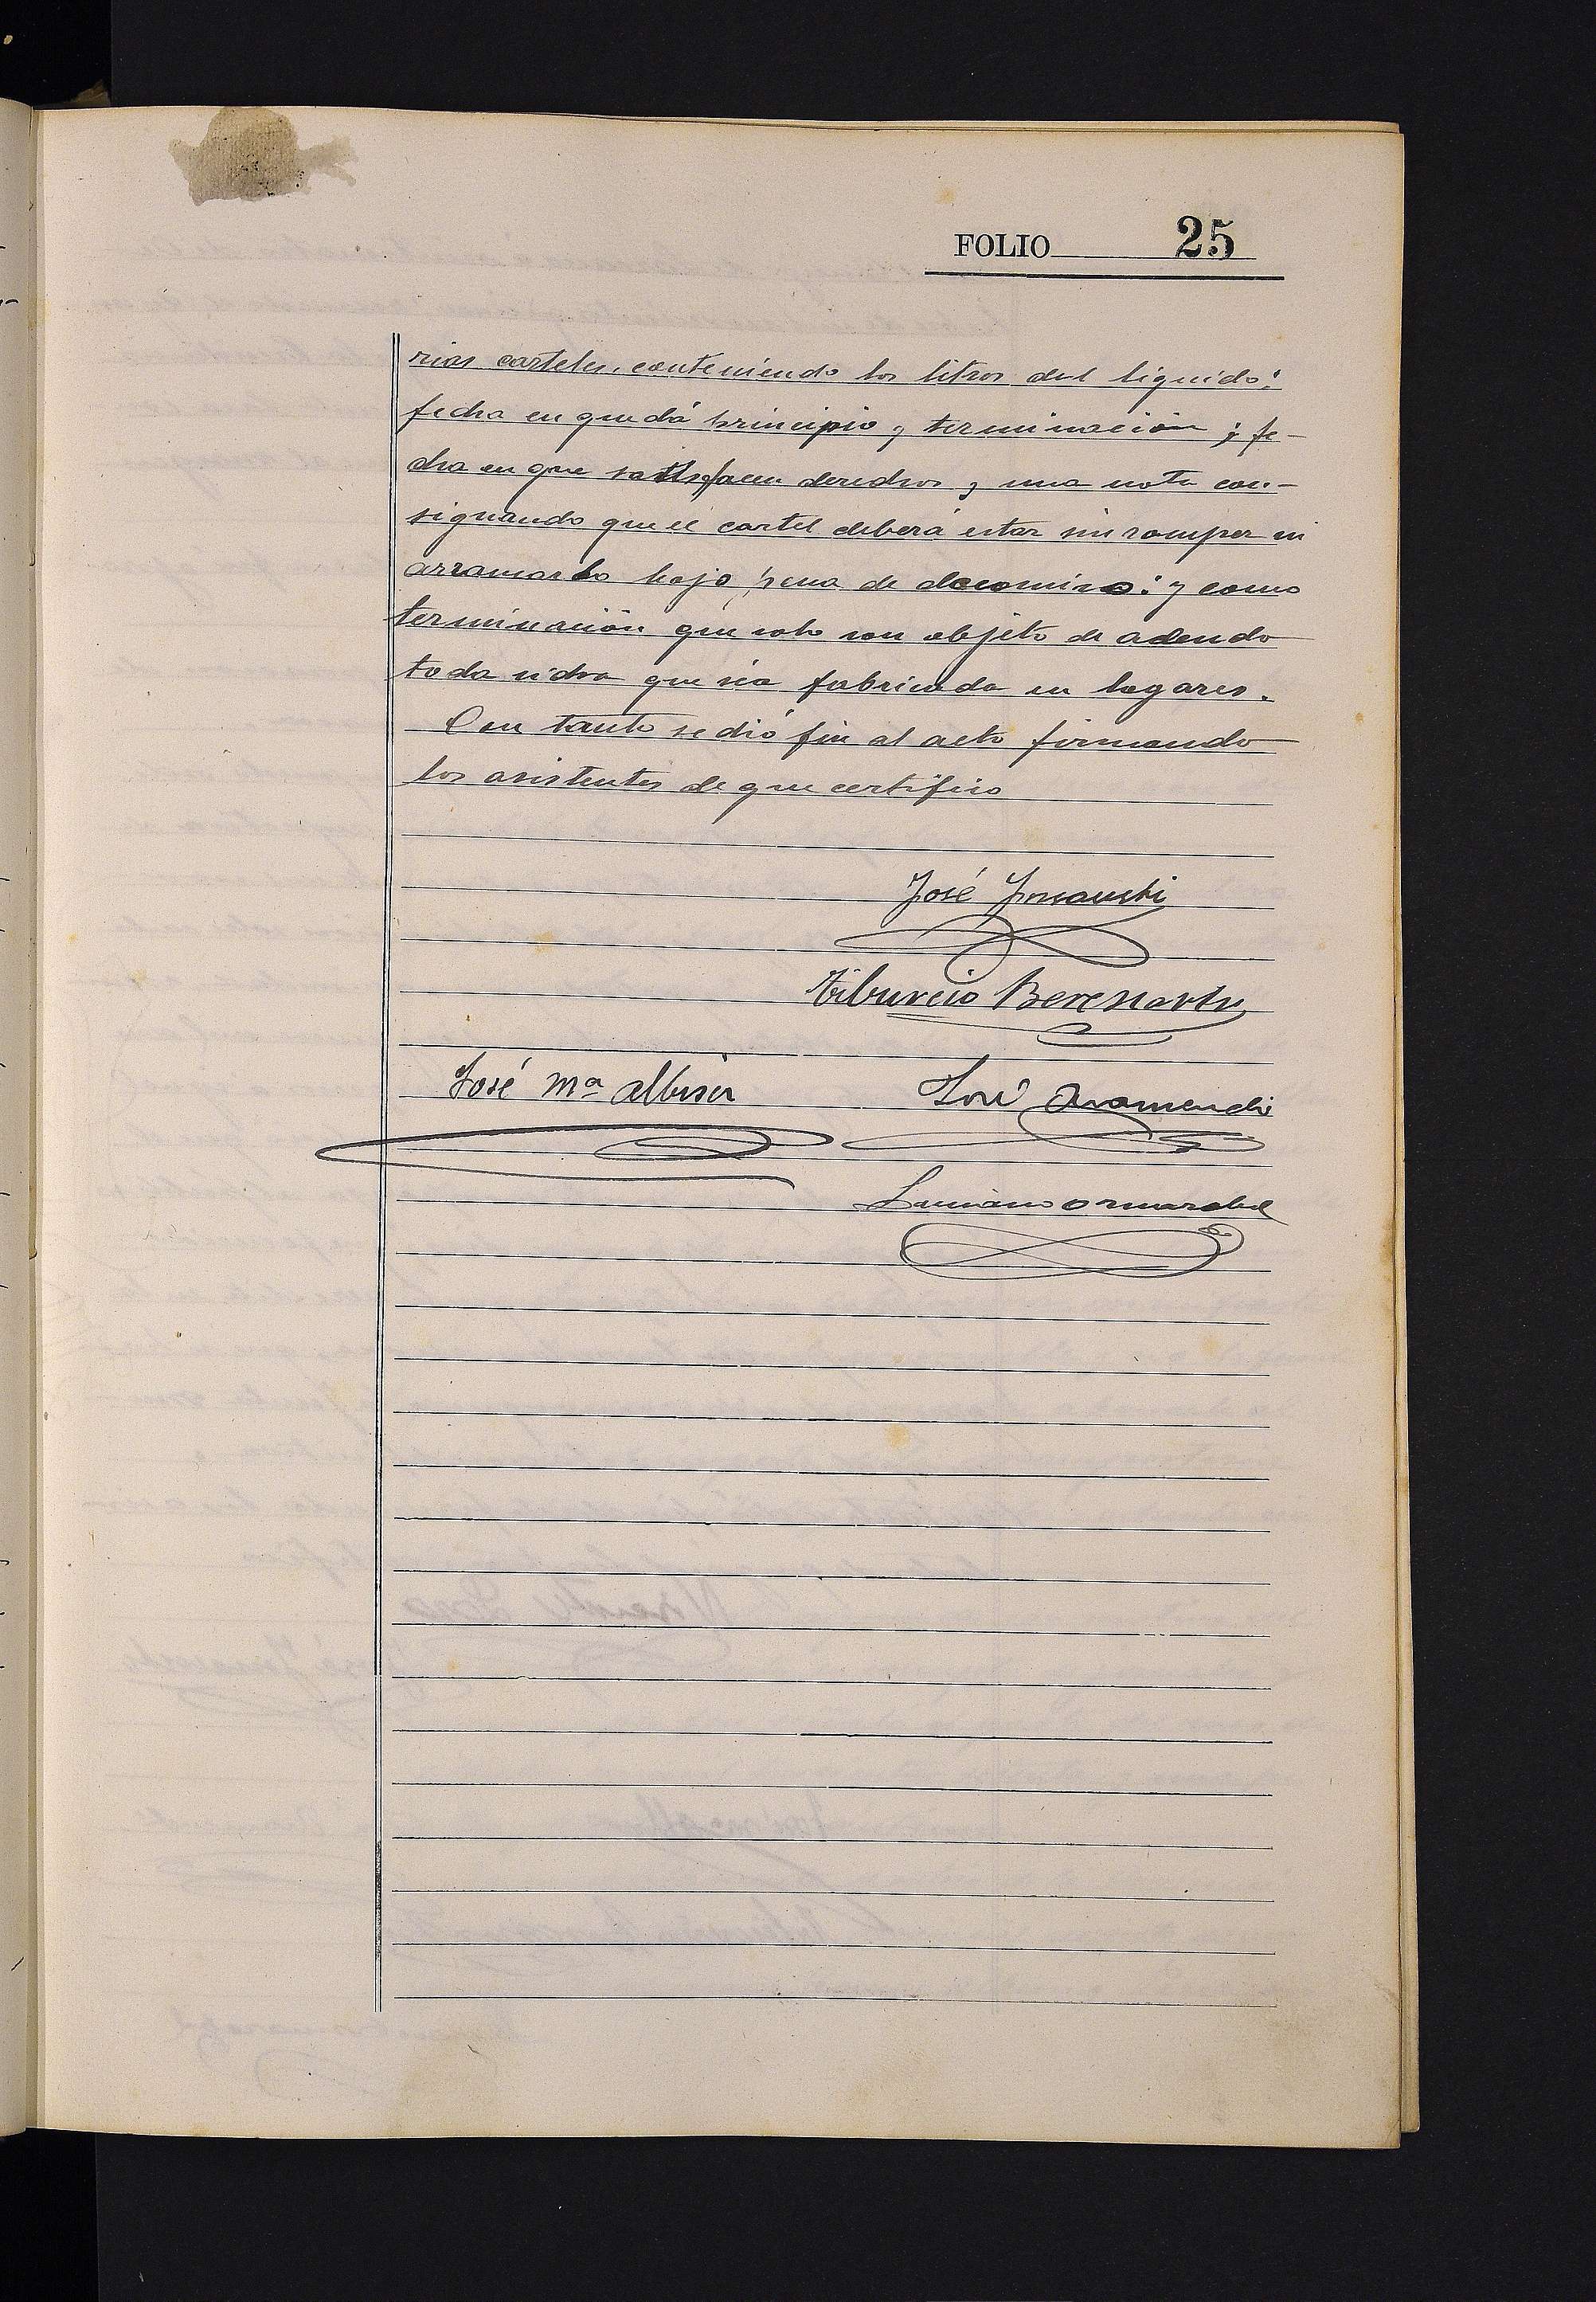 FOLIO 25
rias carteles, conteniendo los litros del liquido:
fecha en que dá principio y terminación y fe-
cha en que satisfacen derechos y una nota con-
signando que el cartel deberá estar sin romper ni
arrancarlo bajo pena de decomiso: y como
terminación que solo son objeto de adeudo
toda sidra que sea fabricada en lagares.
Con tanto se dió fin al acto firmando
los asistentes de que certifico
José
Tiburcio Berasartu
José Mª Albisu José Aramendi
Luciano Ormazabal